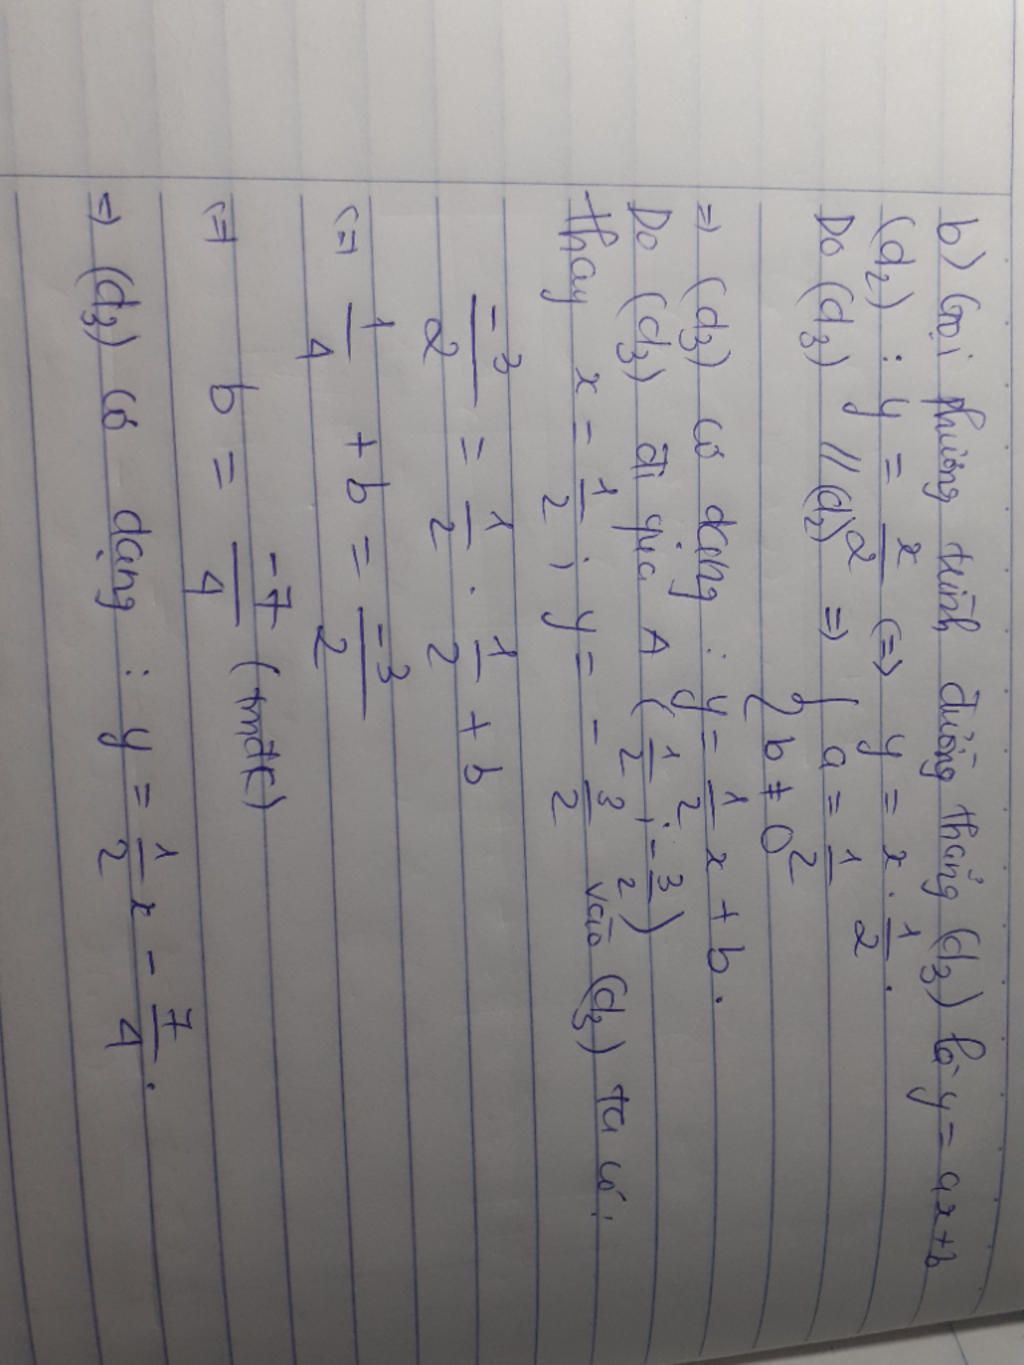 b) Gọi phương trình đường thẳng (d₃) là y = ax+b
(d₂) : y = x/2 (=) y = x . 1/2 .
Do (d₃) // (d₂) => { a = 1/2
b ≠ 0
=> (d₃) có dạng : y = 1/2 x + b .
Do (d₃) đi qua A (1/2 ; -3/2)
thay x = 1/2 ; y = -3/2 vào (d₃) ta có :
-3/2 = 1/2 . 1/2 + b
(=) 1/4 + b = -3/2
(=) b = -7/4 (tmđk)
=> (d₃) có dạng : y = 1/2 x - 7/4 .